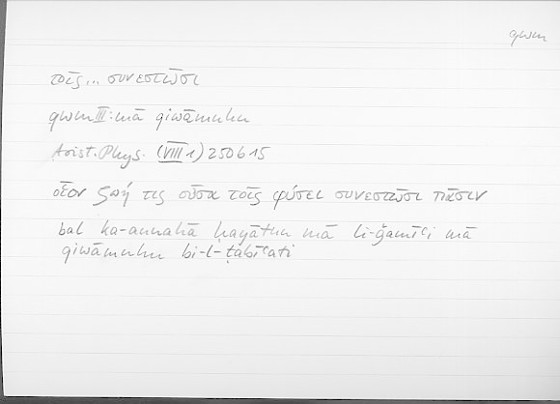 qwm
τοῖς... συνεστῶσι
qwm III: mā qiwāmuhu
Arist. Phys. (VIII 1) 250b15
οἷον ζωή τις οὖσα τοῖς φύσει συνεστῶσι πᾶσιν
bal ka-annahā ḥayātun mā li-ǧamīʿi mā
qiwāmuhu bi-l-ṭabīʿati